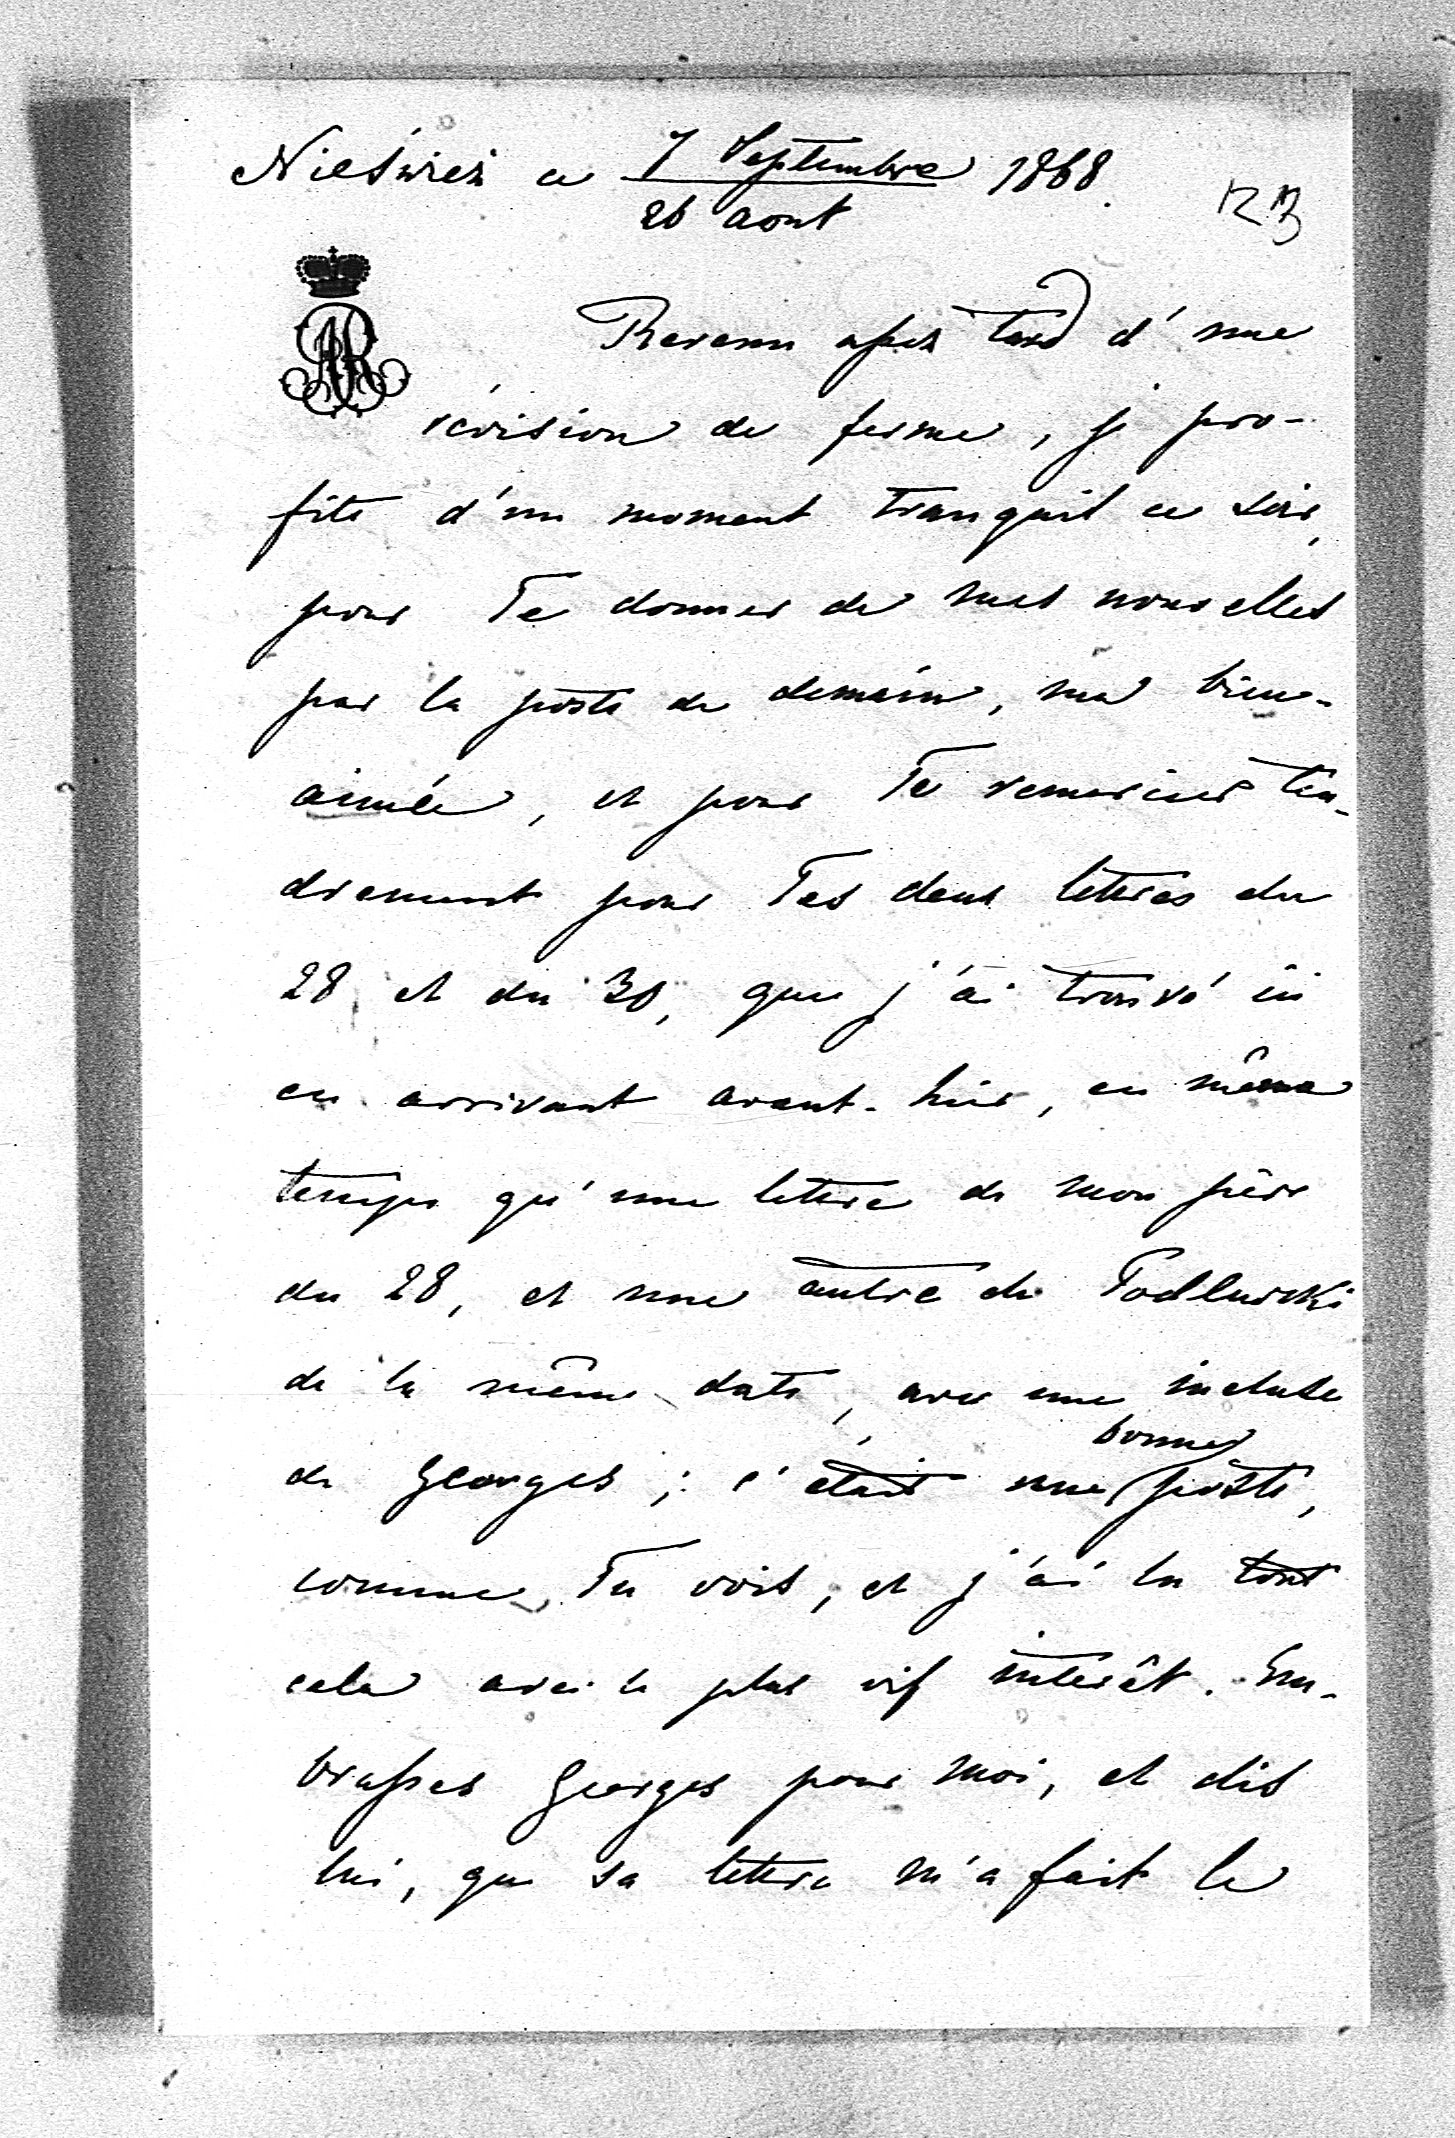 Nieśwież ce 7 Septembre 1868.
26 aout
123
AR
Revenu assez tard d'une
révision de ferme, je pro-
fite d'un moment tranquil ce soir,
pour Te donner de mes nouvelles
par la poste de demain, ma bien-
aimée, et pour Te remercier ten-
drement pour Tes deux lettres du
28 et du 30, que j'ai trouvé ici
en arrivant avant-hier, en même
temps qu'une lettre de mon père
du 28, et une autre de
de la même date, avec une incluse
bonne
de Georges; c'était une poste,
comme Tu vois, et j'ai lu tout
cela avec le plus vif intérêt. Em-
brasses Georges pour moi, et dis
lui, que sa lettre m'a fait le